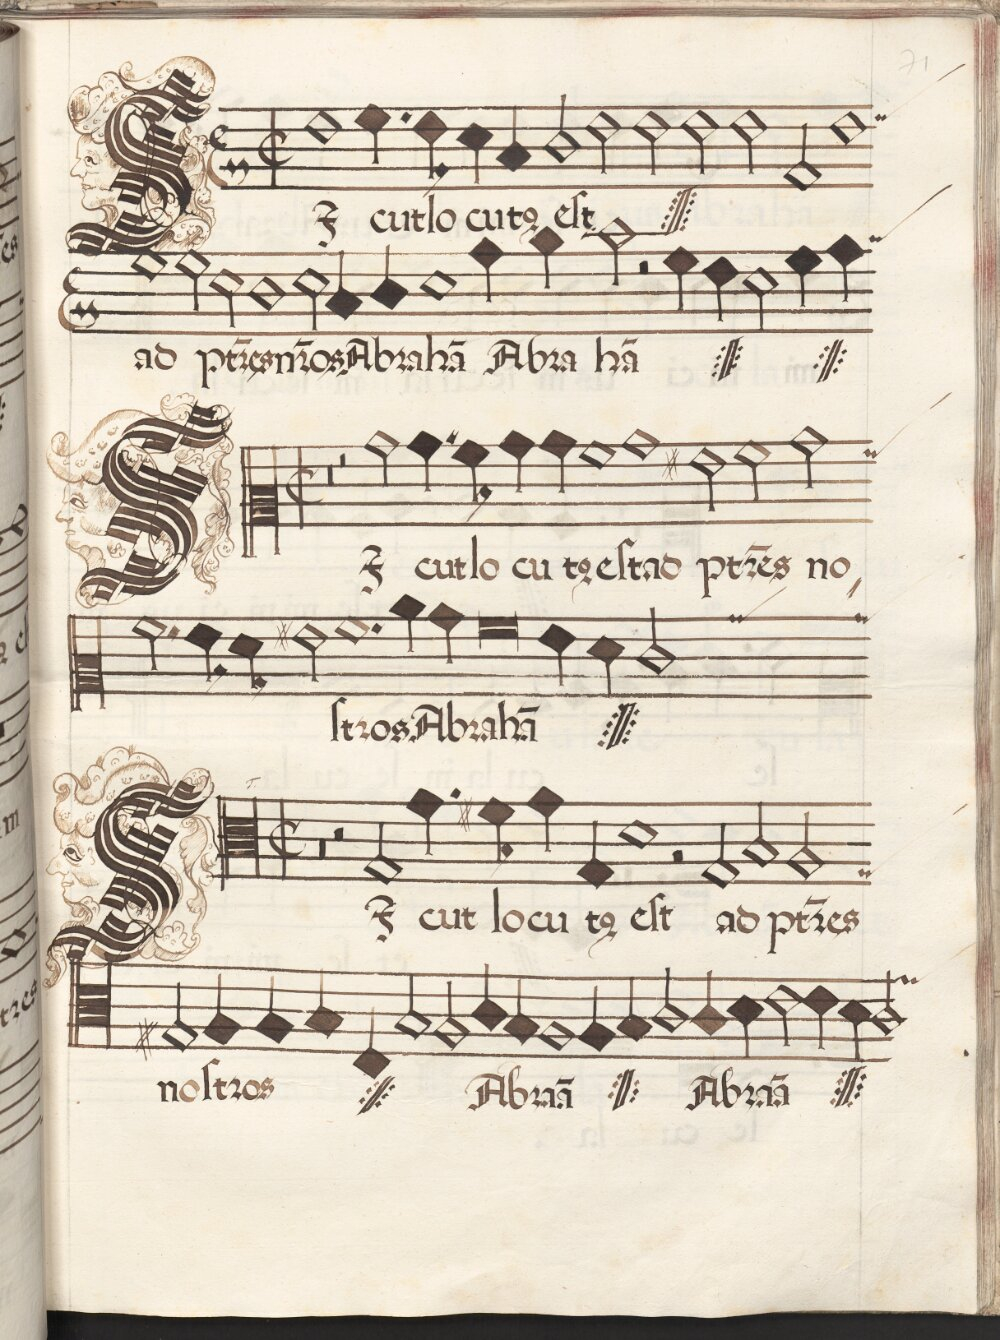 71
SI cut locutꝯ est
ad pt̃res nr̃os Abrahã Abra hã
SI cut lo cu tꝯ est ad pt̃res no,
stros Abrahã
SI cut locu tꝯ est ad pt̃res
nostros Abraã Abraã